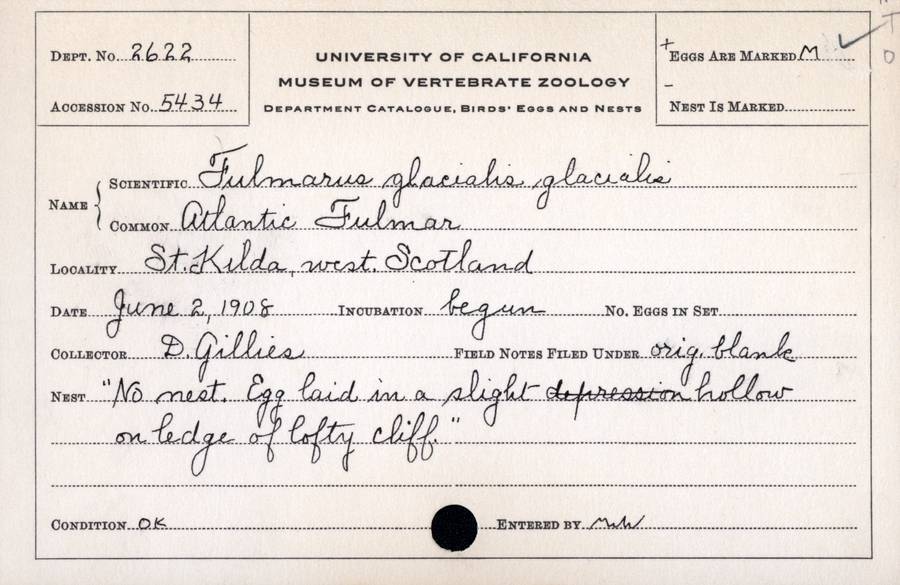 Dept. No. 2622
UNIVERSITY OF CALIFORNIA
MUSEUM OF VERTEBRATE ZOOLOGY
Department Catalogue, Birds' Eggs and Nests
Accession No. 5434
+ Eggs Are Marked M ✓
– Nest Is Marked
Name { Scientific Fulmarus glacialis glacialis
Common Atlantic Fulmar
Locality St. Kilda, west. Scotland
Date June 2, 1908 Incubation begun No. Eggs in Set
Collector D. Gillies Field Notes Filed Under orig. blank
Nest "No nest. Egg laid in a slight depression hollow
on ledge of lofty cliff."
Condition OK Entered by